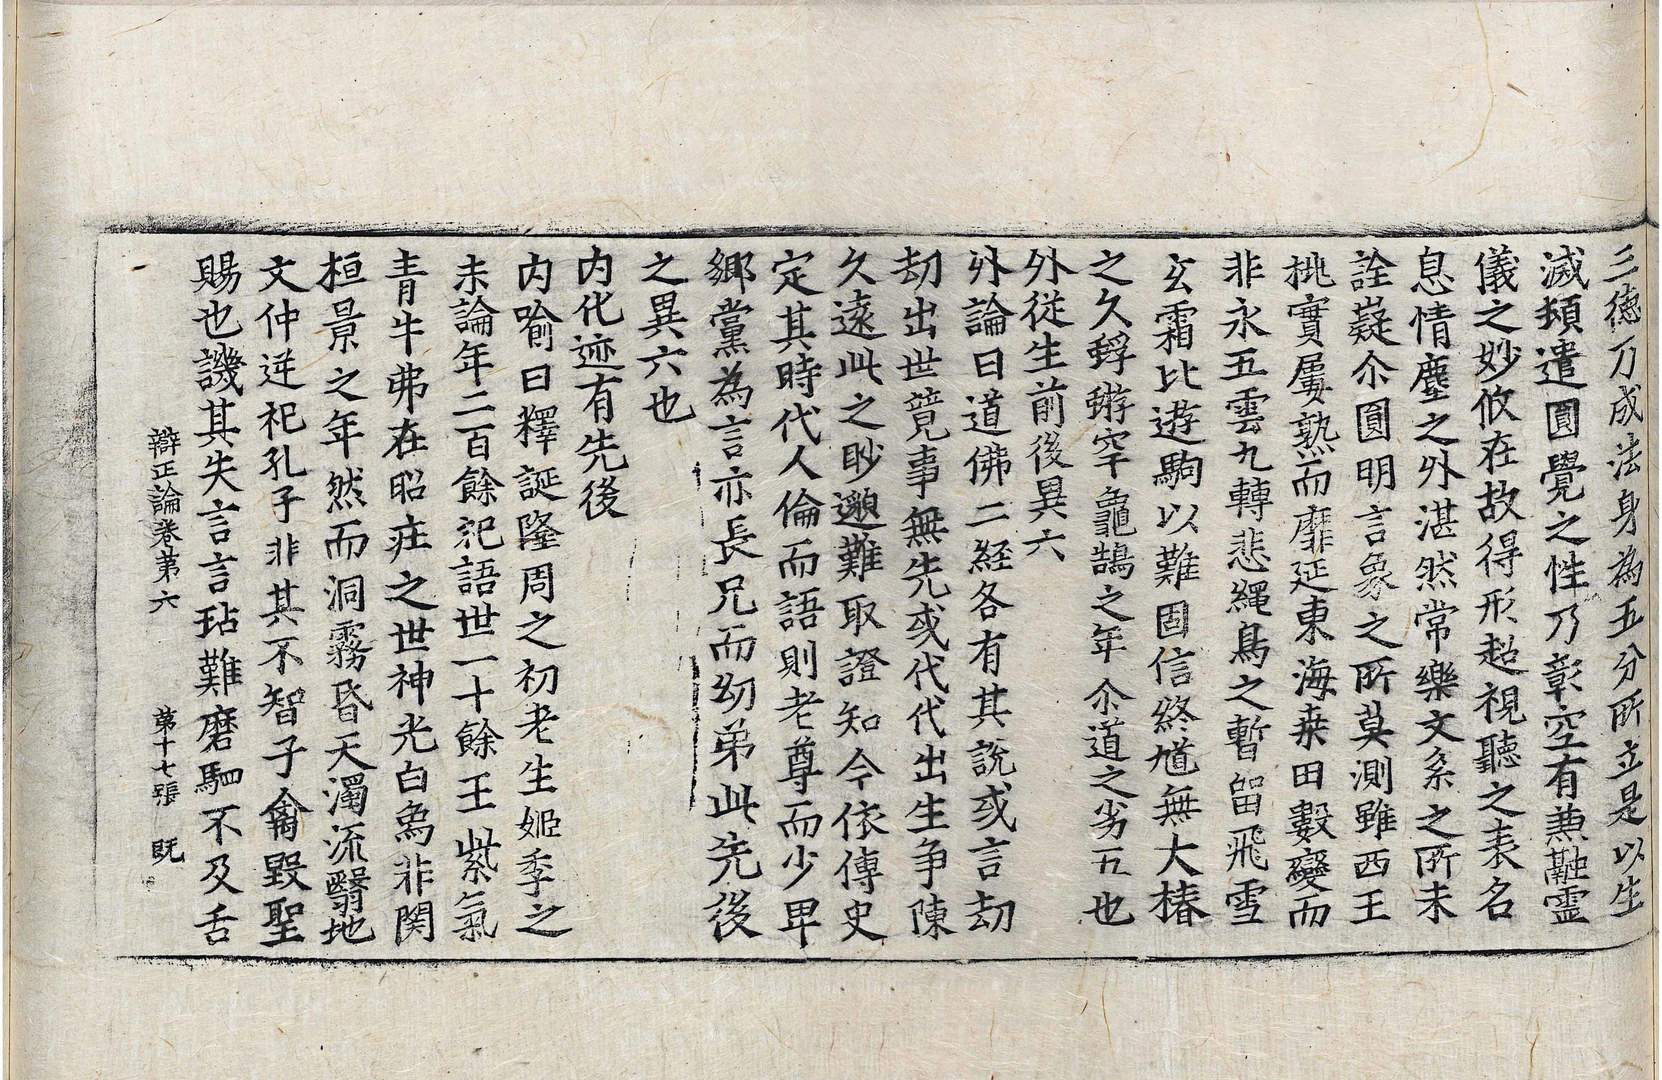 三德乃成法身為五分所立是以生
滅頻遣圓覺之性乃彰空有兼融靈
儀之妙攸在故得形超視聽之表名
息情塵之外湛然常樂文系之所未
詮嶷尒圓明言象之所莫測雖西王
桃實屢熟而靡延東海桒田數變而
非永五雲九轉悲繩鳥之暫留飛雪
玄霜比遊駒以難固信終馗無大椿
之久蜉蝣罕龜鵠之年尒道之劣五也
外從生前後異六
外論曰道佛二経各有其說或言劫
劫出世竟事無先或代代出生争陳
久遠此之眇邈難取證知今依傳史
定其時代人倫而語則老尊而少卑
鄉黨為言亦長兄而幼弟此先後
之異六也
内化迹有先後
内喻曰釋誕隆周之初老生姬季之
末論年二百餘祀語世一十餘王紫氣
青牛弗在昭莊之世神光白象非関
桓景之年然而洞霧昏天濁流翳地
文仲逆祀孔子非其不智子禽毀聖
賜也譏其失言言玷難磨駟不及舌
辯正論卷第六 第十七張 旣